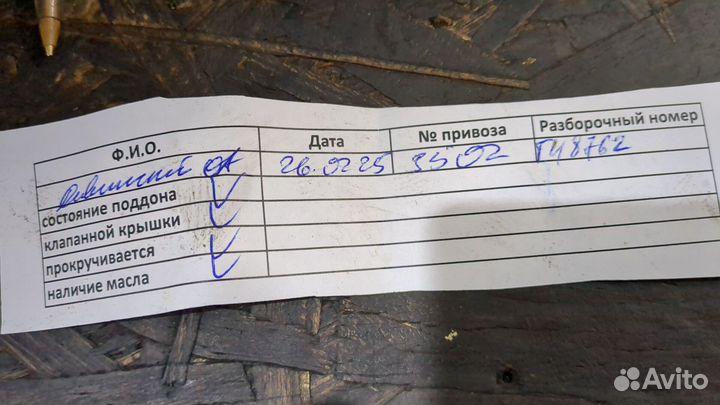 Ф.И.О. Дата № привоза Разборочный номер
26.02 25 3502 ТЧ8762
состояние поддона
клапанной крышки
прокручивается
наличие масла
Avito